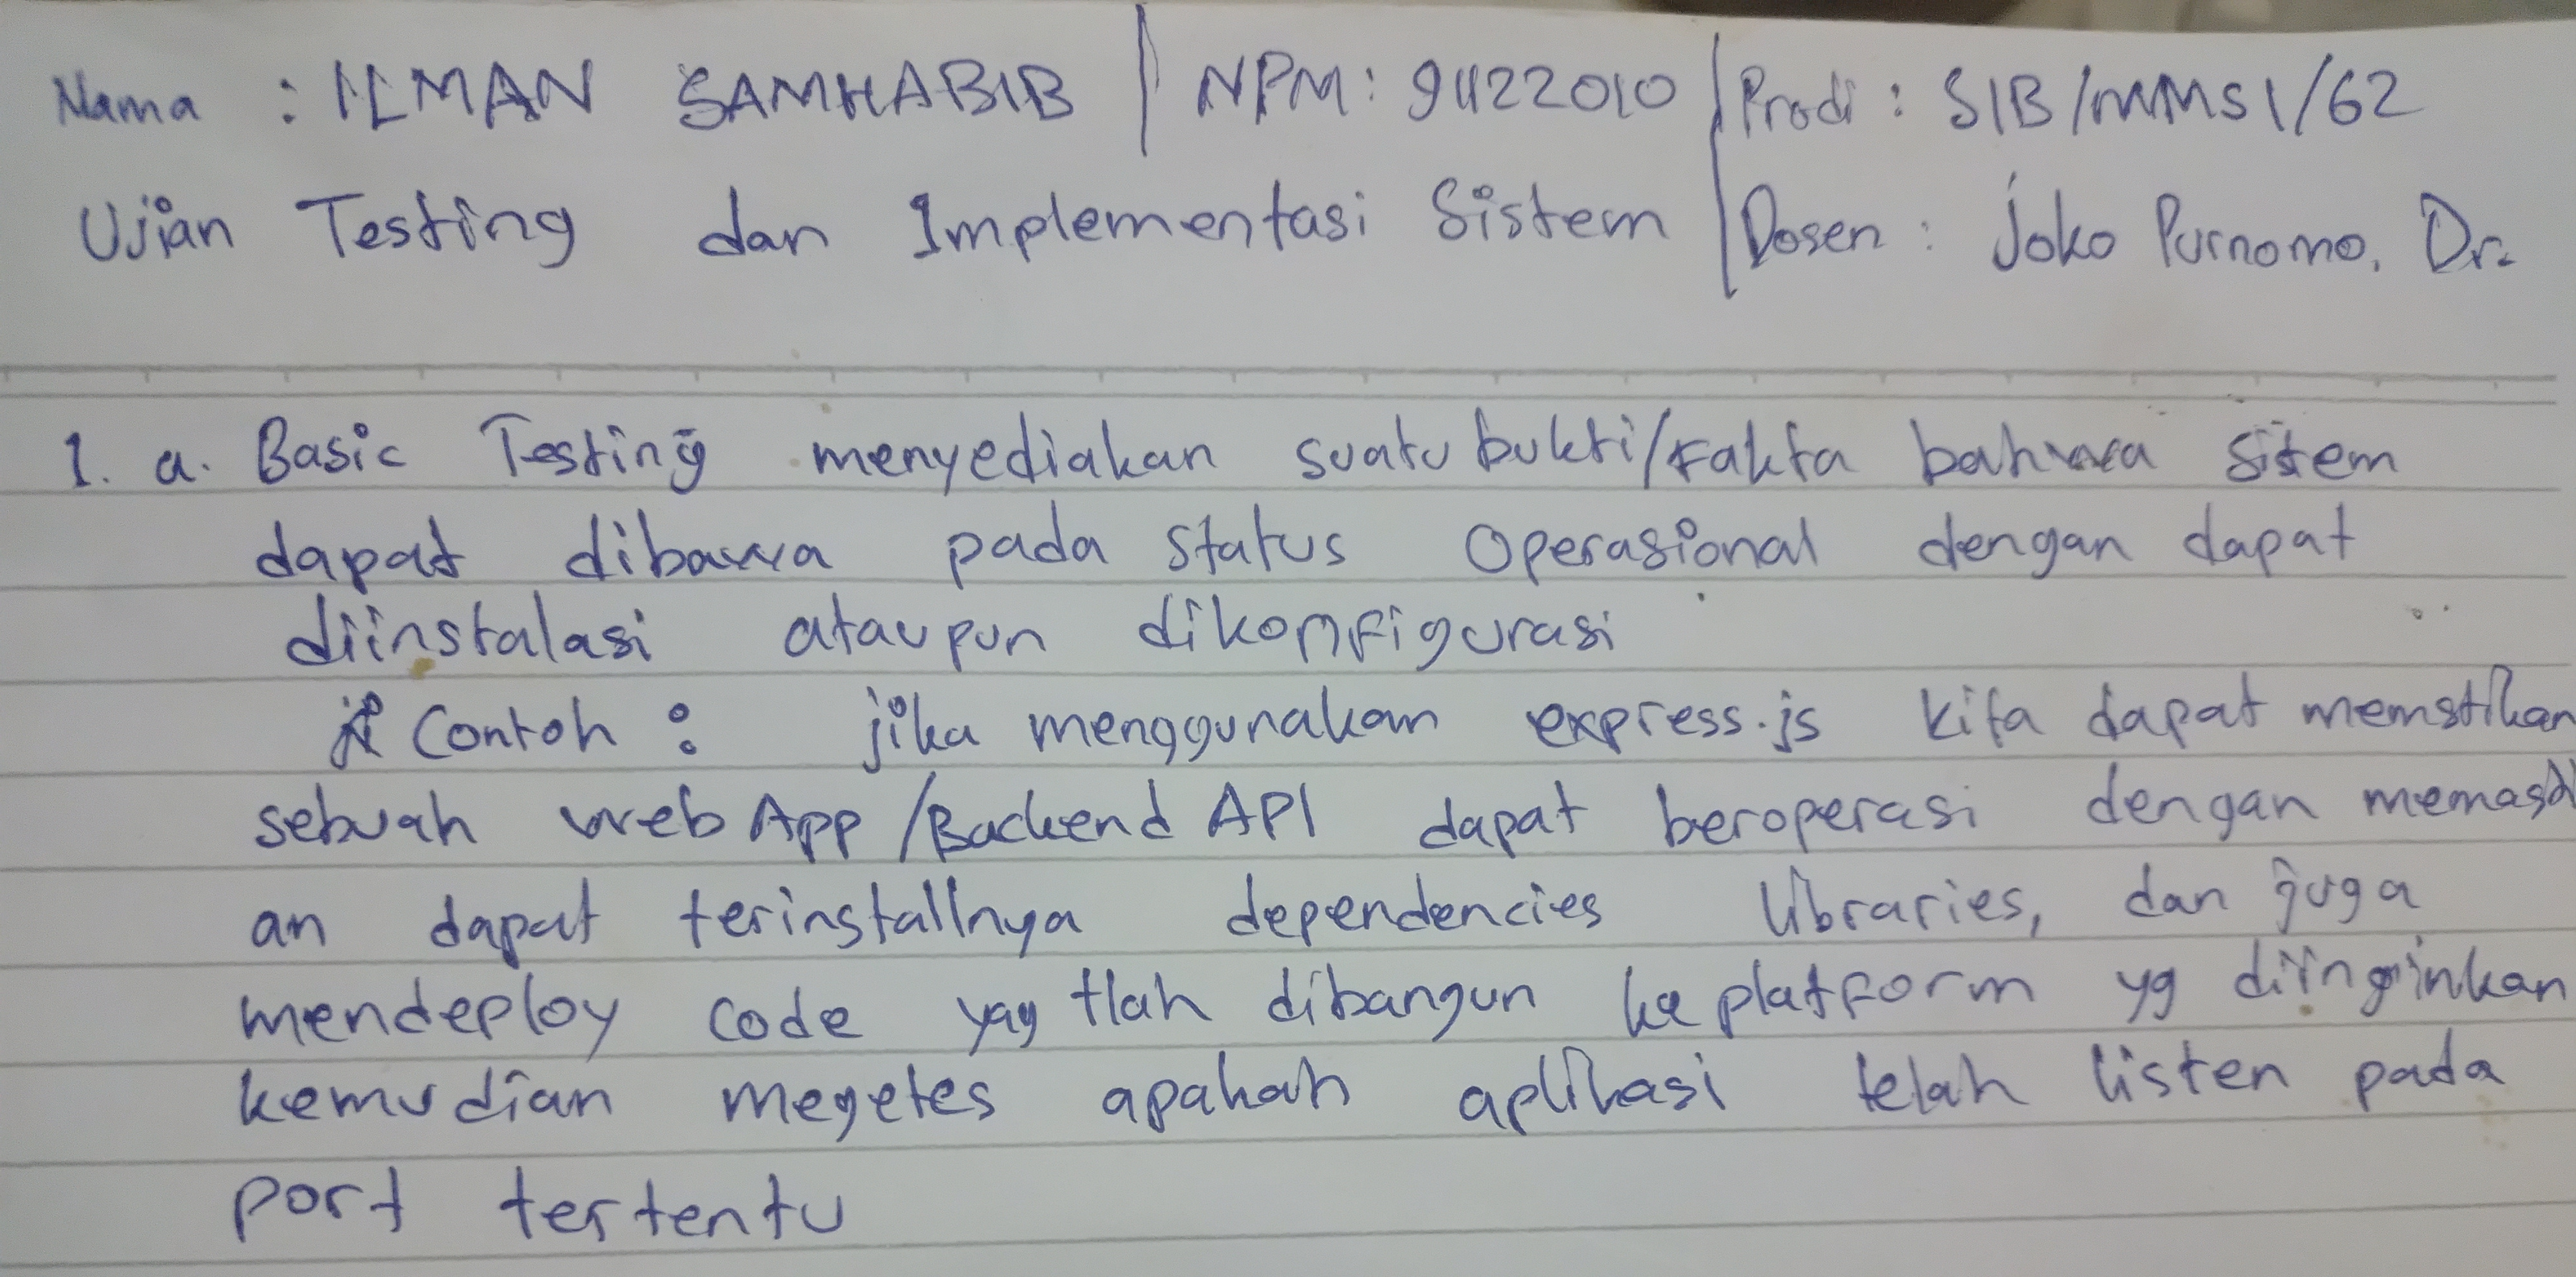 Nama : ILMAN SAMHABIB | NPM: 91122010 | Prodi : SIB/MMSI/62
Ujian Testing dan Implementasi Sistem | Dosen : Joko Purnomo, Dr.
1. a. Basic Testing menyediakan suatu bukti/fakta bahwa sitem
dapat dibawa pada status operasional dengan dapat
diinstalasi ataupun dikonfigurasi
Contoh : jika menggunakan express.js kita dapat memstikan
sebuah web App /Backend API dapat beroperasi dengan
an dapat terinstallnya dependencies libraries, dan juga
mendeploy code yag tlah dibangun ke platform yg diinginkan
kemudian megetes apakah aplikasi telah listen pada
port tertentu